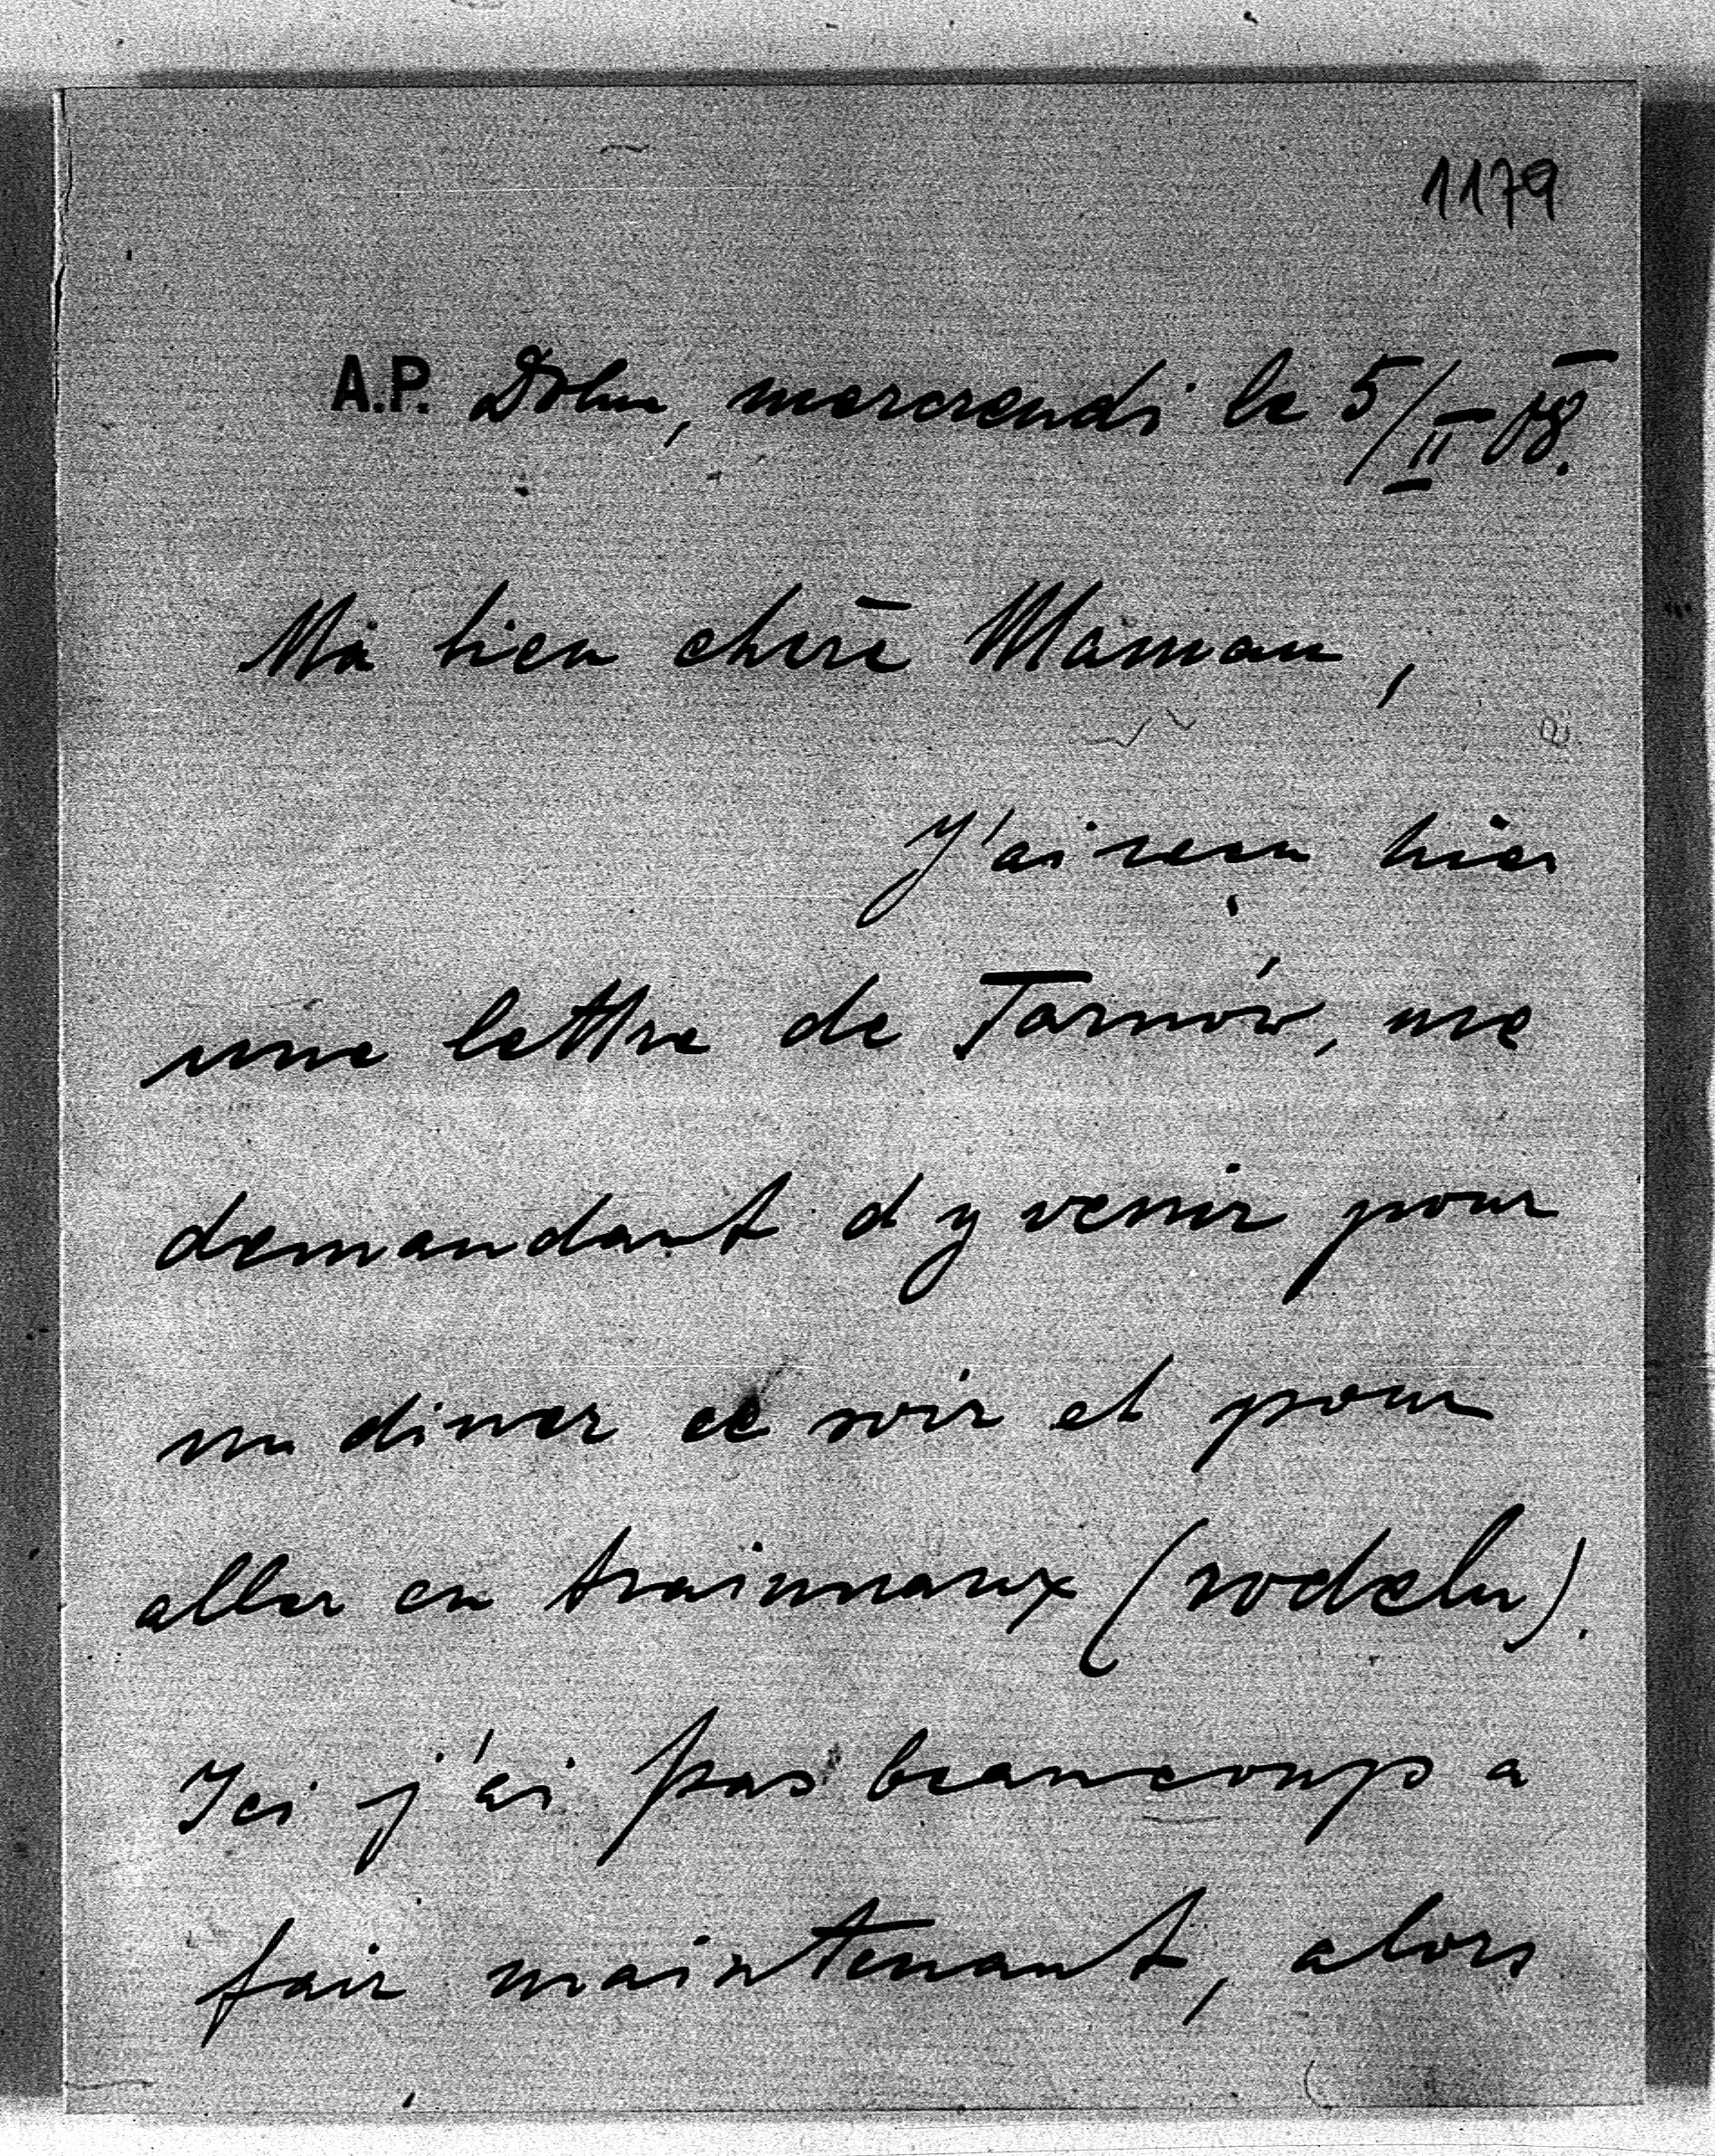 1179
A.P. Dolna, mercrendi le 5/II 08.
Ma bien chère Maman,
J'ai reçu hier
une lettre de Tarnów, me
demandant d y venir pour
un diner ce soir et pour
aller en trainneaux (rodeln).
Ici j'ai pas beaucoup a
fair maintenant, alors